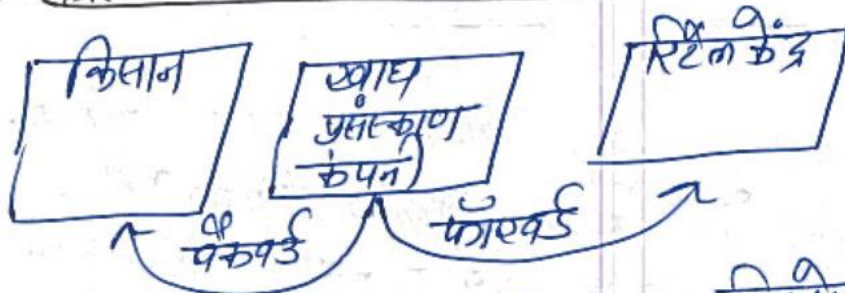 किसान
खाद्य
प्रसंस्करण
कंपनी
रिटेल केंद्र
बैकवर्ड
फॉरवर्ड